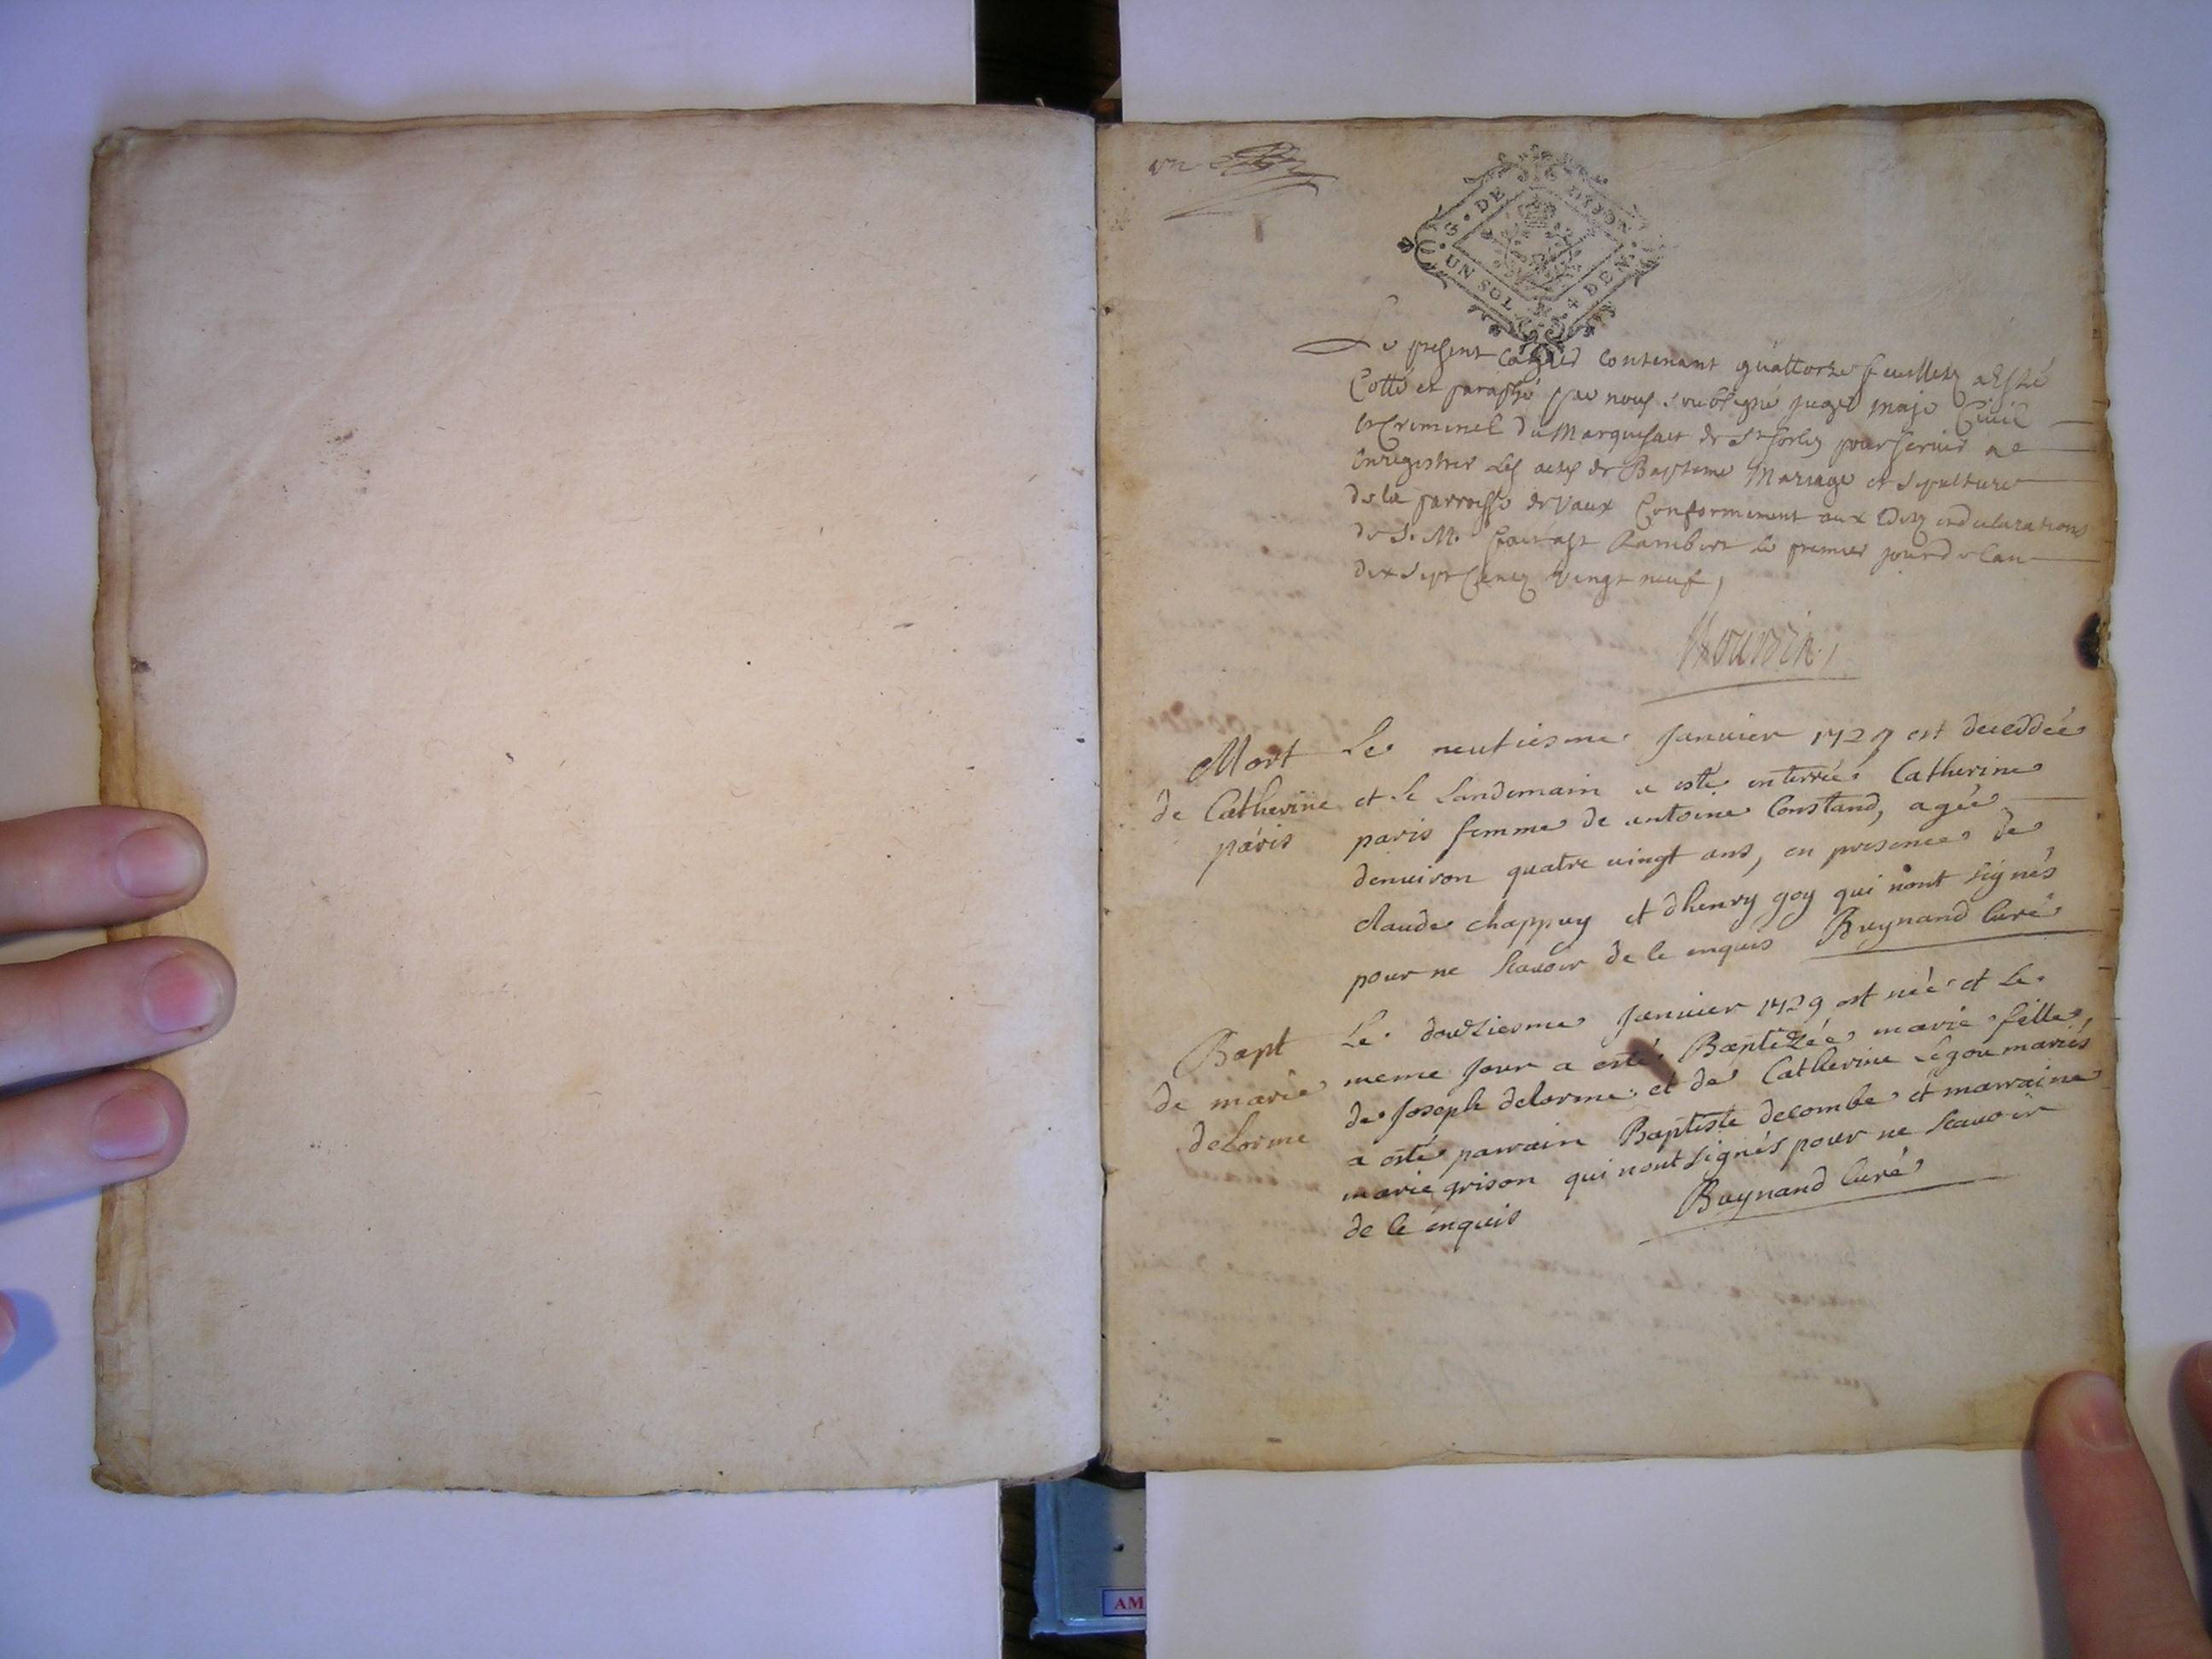 un
G. DE DIJON
UN SOL 4 DEN.
Le present cahier contenant quattorze feuillets a esté
Cotté et paraphé par nous soubsigné juge maje Civil
et Criminel du Marquisat de St Sorlin pour servir a
enregistrer les actes de Bapteme Mariage et sepulture
de la parroisse de Vaux Conformement aux Edits et declarations
de S. M. fait a St Rambert le premier jour de lan
dix sept Cents vingt neuf,
Mort
de Catherine
paris
Le neufiesme Janvier 1729 est deceddée
et le landemain a esté enterrée Catherine
paris femme de antoine Constand, agée
denuiron quatre uingt ans, en presence de
claude chappuy et dhenry goy qui nont signés
pour ne scauoir de le enquis Buynand Curé
Bapt
de marie
delorme
Le douziesme Januier 1729 est née et le
meme Jour a esté Baptizée marie fille
de Joseph delorme et de Catherine Legou mariés
a esté parrain Baptiste decombe et marraine
marie grison qui nont signés pour ne scauoir
de le enquis Buynand Curé
AM